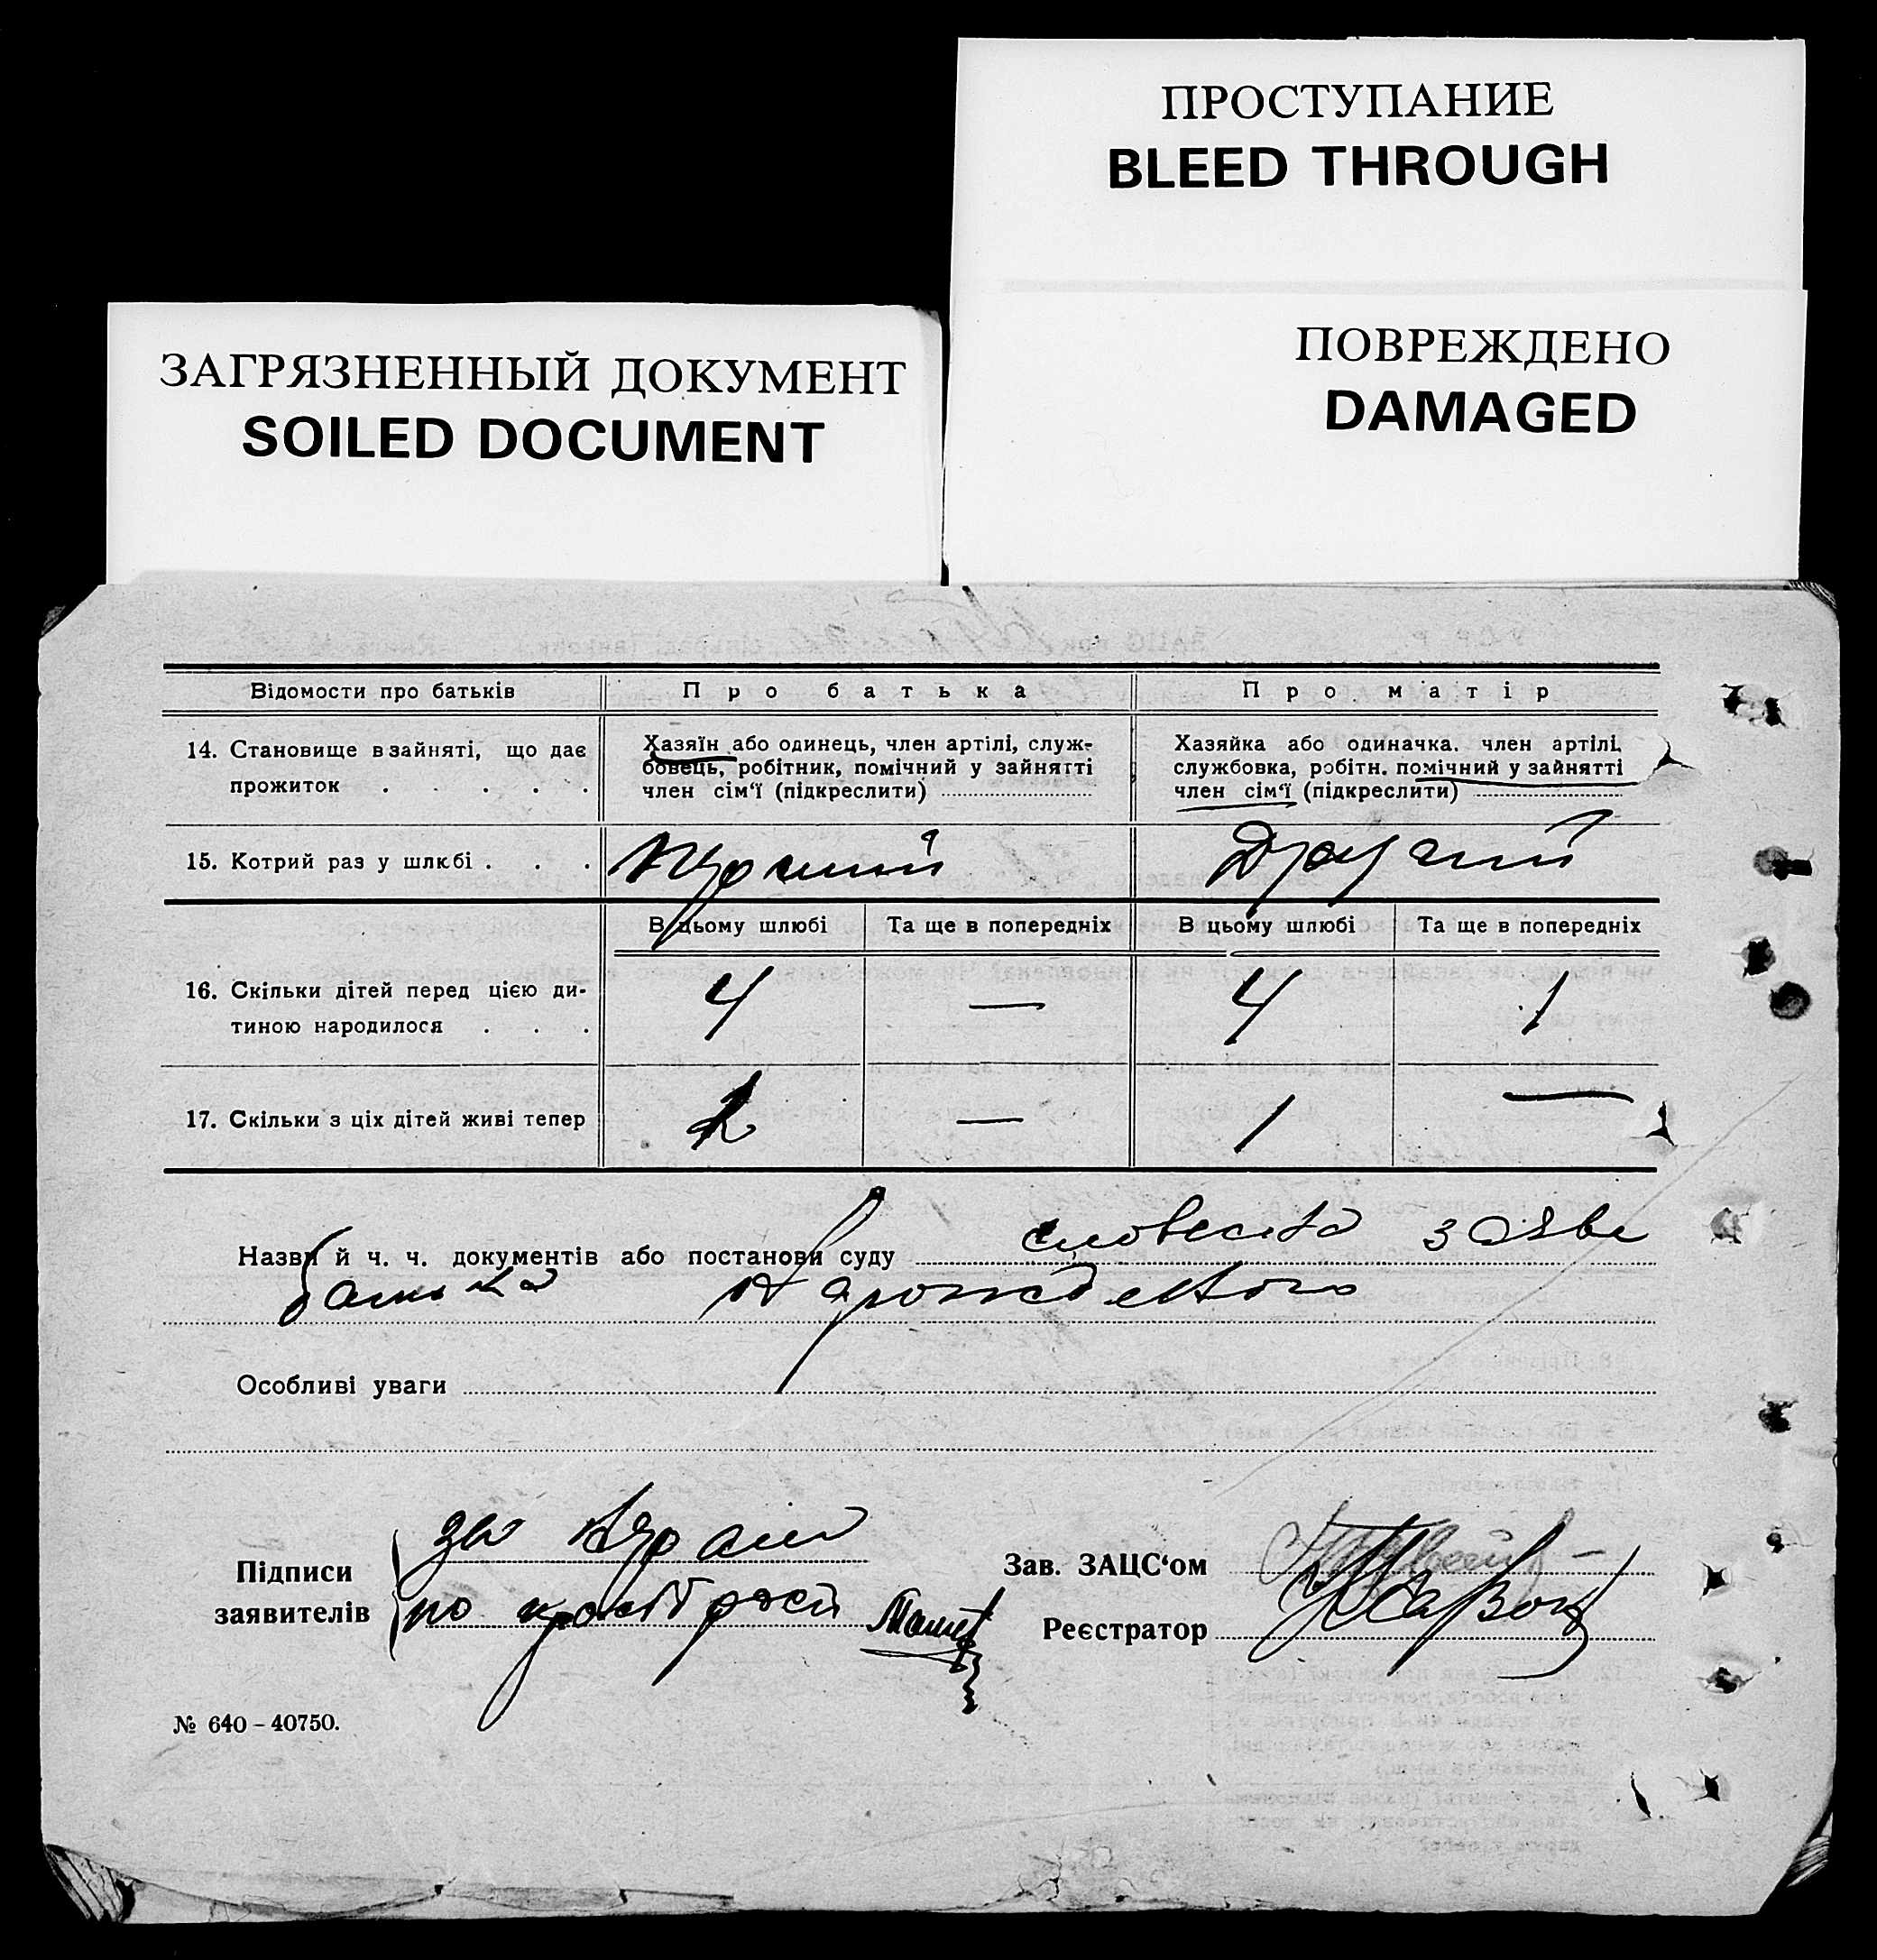 ПРОСТУПАНИЕ
BLEED THROUGH
ПОВРЕЖДЕНО
DAMAGED
ЗАГРЯЗНЕННЫЙ ДОКУМЕНТ
SOILED DOCUMENT
Відомости про батьків Про батька Про матір
14. Становище в зайняті, що дає прожиток . . . . .
Хазяїн або одинець, член артілі, служ-
бовець, робітник, помічний у зайнятті
член сім'ї (підкреслити)
Хазяйка або одиначка. член артілі,
службовка, робітн. помічний у зайнятті
член сім'ї (підкреслити)
15. Котрий раз у шлюбі . . . Другий
В цьому шлюбі Та ще в попередніх В цьому шлюбі Та ще в попередніх
16. Скільки дітей перед цією ди-
тиною народилося . . . 4 — 4 1
17. Скільки з ціх дітей живі тепер — 1 —
Назви й ч. ч. документів або постанови суду словесна заява
батька
Особливі уваги
Підписи
заявителів
за
по
Зав. ЗАЦС'ом
Реєстратор
№ 640 – 40750.